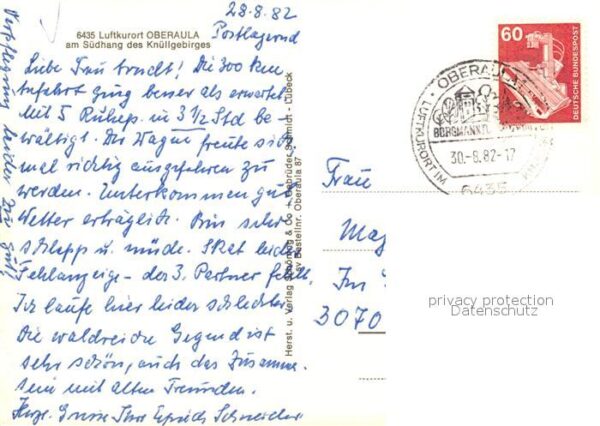 28.8.82
Postlagernd
6435 Luftkurort OBERAULA
am Südhang des Knüllgebirges
Liebe Frau ! Die 300 km
Anfahrt ging besser als erwartet
mit 5 Ruhep. in 3 1/2 Std be-
wältigt. Der Wagen freute sich
mal richtig ausgefahren zu
werden. Unterkommen gut
Wetter erträglich. Bin sehr
schlapp u. müde. Skat leider
Fehlanzeige - der 3. Partner fehlt.
Ich laufe hier leider schlechter
Die waldreiche Gegend ist
sehr schön, auch das Zusamme.
sein mit alten Freunden.
Herzl. Grüsse Ihre Schneider
Verpflegung leider zu gut!
Herst. u. Verlag Schöning & Co + Gebrüder Schmidt, Lübeck
Bestellnr. Oberaula 87
60
DEUTSCHE BUNDESPOST
OBERAULA
LUFTKURORT IM
30.-8.82-17
6435
Frau
Mag
Im
3070
privacy protection
Datenschutz